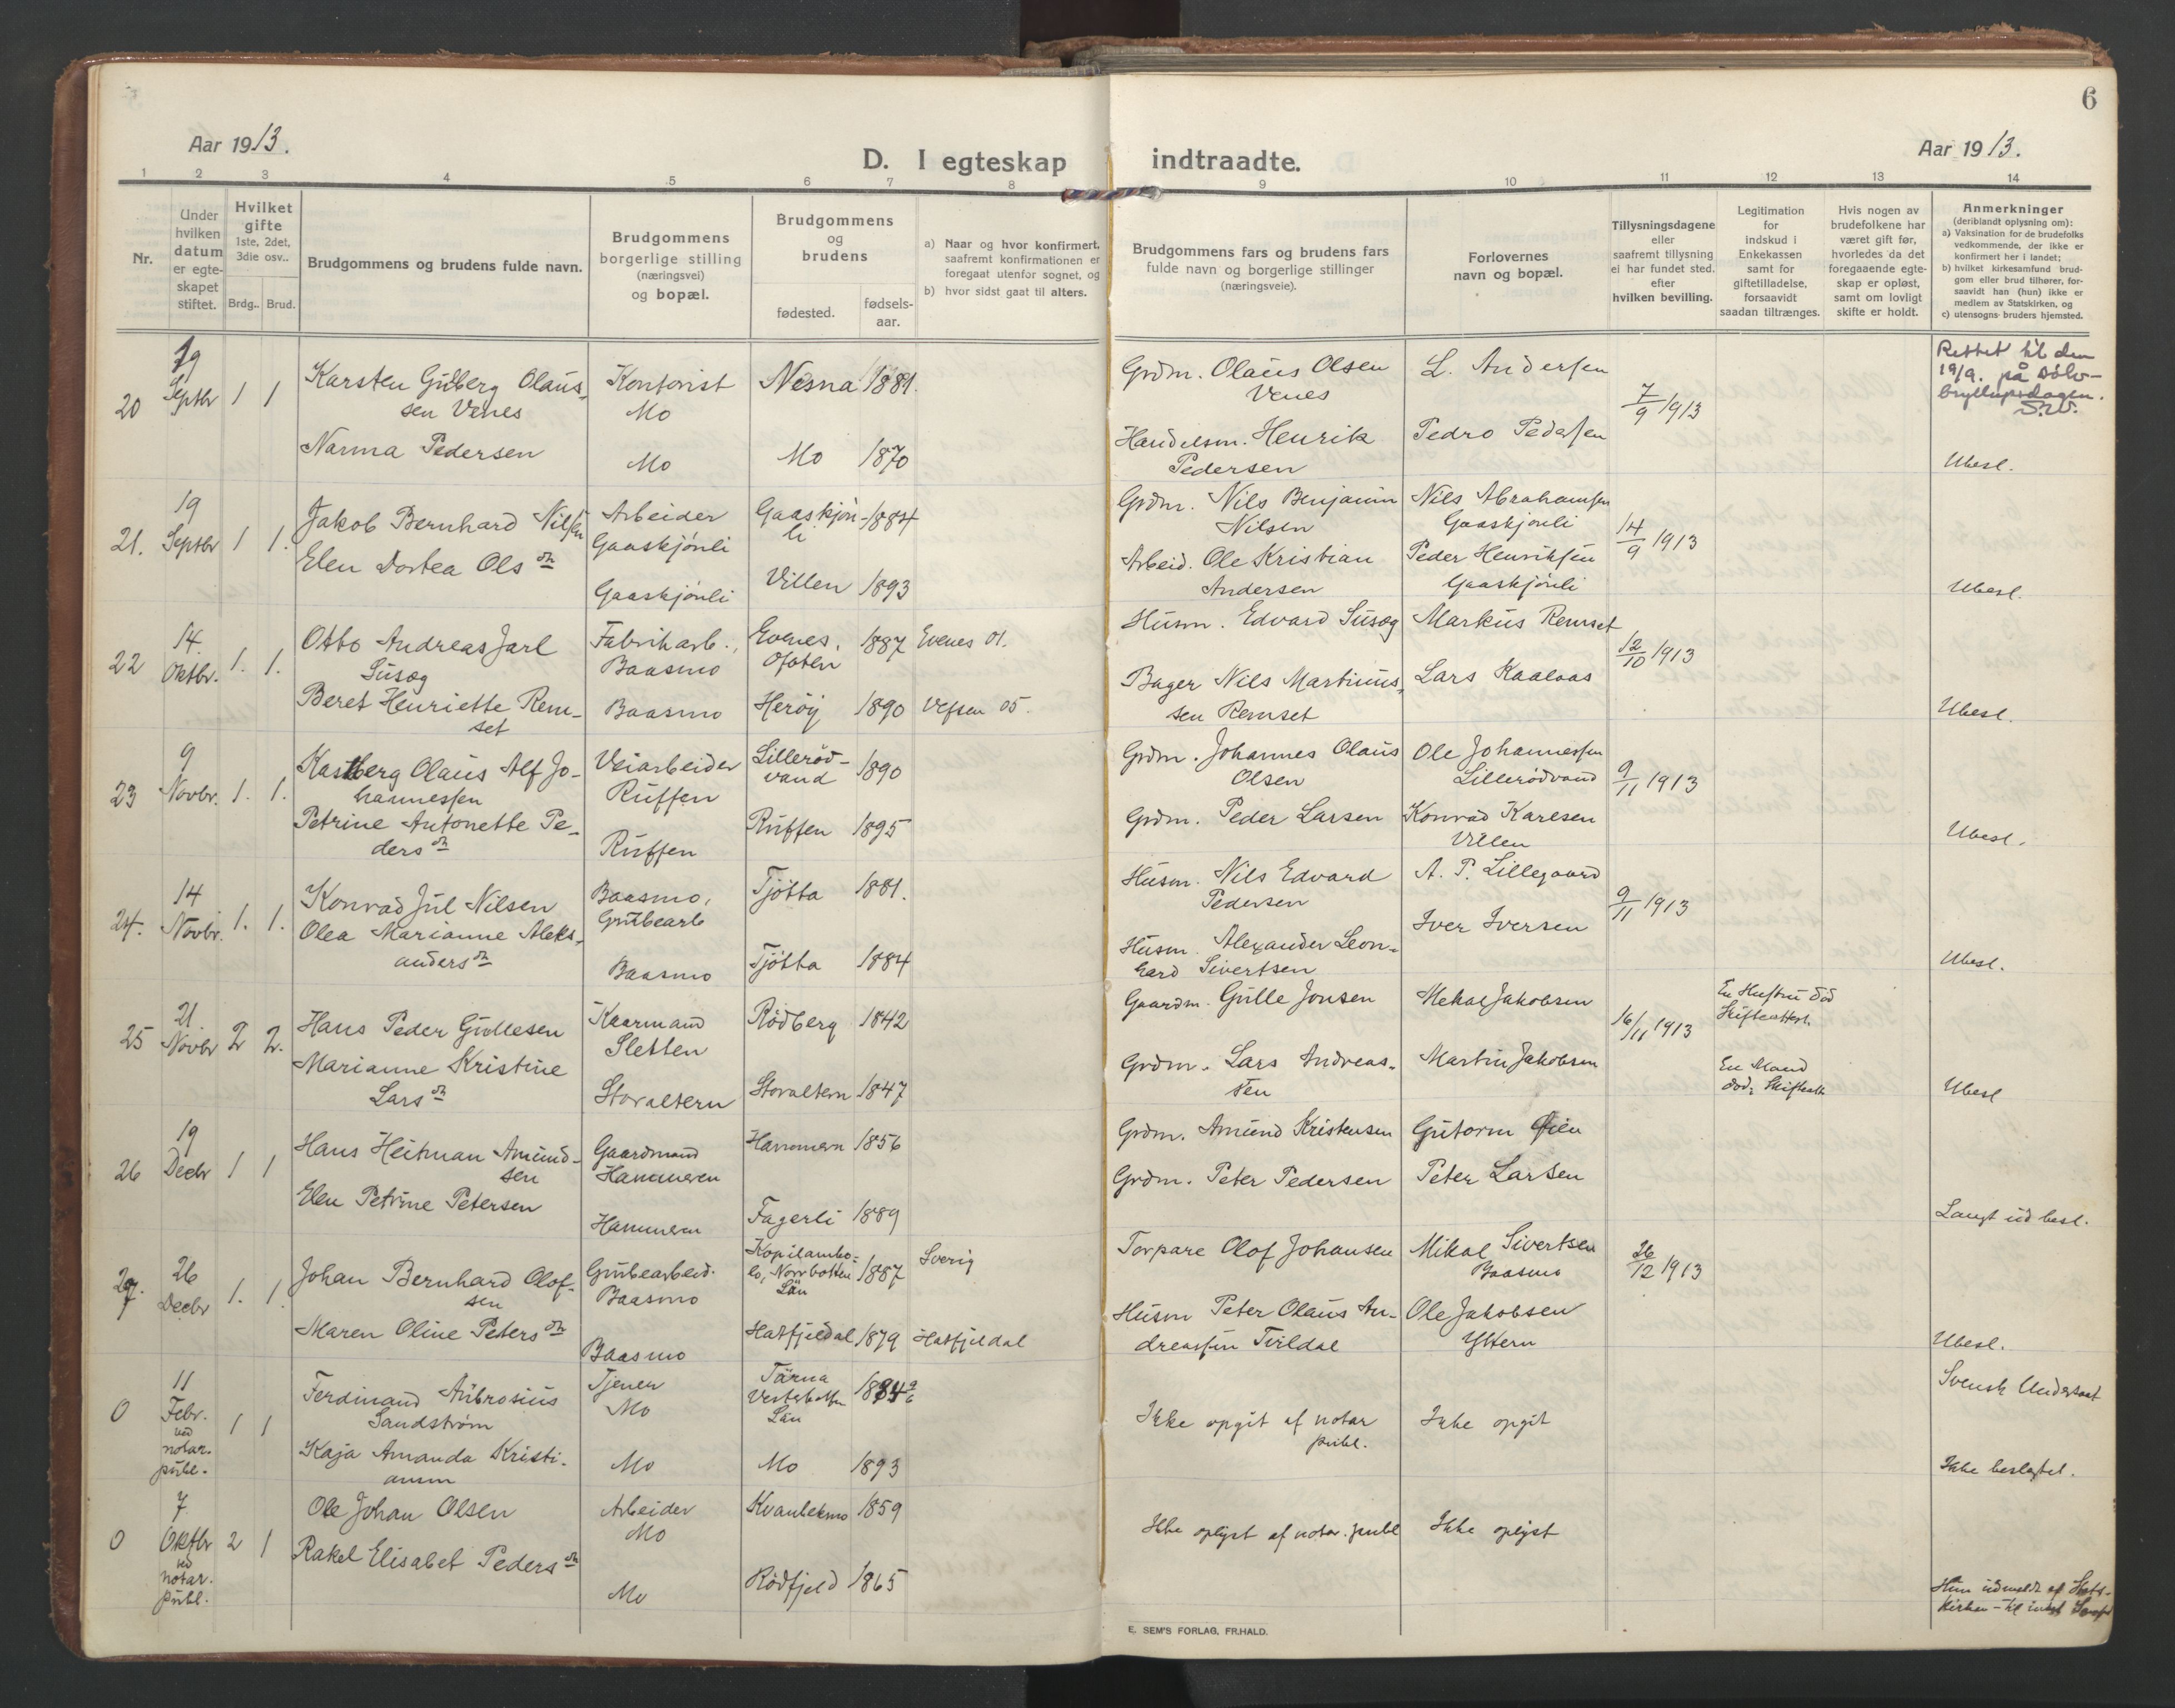 6
Aar 1913.
D. I egteskap indtraadte.
Aar 1913.
1 2 3 4 5 6 7 8 9 10 11 12 13 14
Nr.
Under hvilken datum er egteskapet stiftet.
Hvilket gifte 1ste, 2det, 3die osv..
Brdg.. Brud.
Brudgommens og brudens fulde navn.
Brudgommens borgerlige stilling (næringsvei) og bopæl.
Brudgommens og brudens
fødested.
fødsels-aar.
a) Naar og hvor konfirmert, saafremt konfirmationen er foregaat utenfor sognet, og
b) hvor sidst gaat til alters.
Brudgommens fars og brudens fars fulde navn og borgerlige stillinger (næringsveie).
Forlovernes navn og bopæl.
Tillysningsdagene eller saafremt tillysning ei har fundet sted. efter hvilken bevilling.
Legitimation for indskud i Enkekassen samt for giftetilladelse, forsaavidt saadan tiltrænges.
Hvis nogen av brudefolkene har været gift før, hvorledes da det foregaaende egteskap er opløst, samt om lovligt skifte er holdt.
Anmerkninger (deriblandt oplysning om):
a) Vaksination for de brudefolks vedkommende, der ikke er konfirmert her i landet;
b) hvilket kirkesamfund brudgom eller brud tilhører, forsaavidt han (hun) ikke er medlem av Statskirken, og
c) utensogns- bruders hjemsted.
20 19 Septbr 1 1
Karsten Gidberg Olaus-
sen Venes
Kontorist
Mo
Nesna 1881.
Grdm. Olaus Olsen
Venes
L. Andersen
7/9 1913
Rettet til den
19/9. på sølv-
bryllupsdagen.
Nanna Pedersen
Mo
Mo 1870
Handelsm. Henrik
Pedersen
Pedro Pedersen
Ubesl.
21. 19 Septbr 1 1.
Jakob Bernhard Nilsen
Arbeider
Gaaskjønli
Gaaskjøn-
li
1884
Grdm. Nils Benjamin
Nilsen
Nils Abrahamsen
Gaaskjønli
14/9 1913
Elen Dortea Ols dtr
Gaaskjønli
Villen 1893
Arbeid. Ole Kristian
Andersen
Peder Henriksen
Gaaskjønli
Ubesl.
22 14. Oktbr. 1. 1.
Otto Andreas Jarl
Susøg
Fabrikarb.,
Baasmo
Evenes,
Ofoten
1887 Evenes 01.
Husm. Edvard Susøg
Markus Remset
12/10 1913
Beret Henriette Rem-
set
Baasmo
Herøy 1890 Vefsen 05.
Bager Nils Martinus-
sen Remset
Lars Kaalaas
Ubesl.
23 9 Novbr. 1. 1.
Kastberg Olaus Alf Jo-
hannessen
Veiarbeider
Ruffen
Lillerød-
vand
1890
Grdm. Johannes Olaus
Olsen
Ole Johannessen
Lillerødvand
9/11 1913
Petrine Antonette Pe-
ders dtr
Ruffen
Ruffen 1895
Grdm. Peder Larsen
Konrad Karlsen
Villen
Ubesl.
24. 14 Novbr. 1. 1.
Konrad Jul Nilsen
Baasmo,
Grubearb
Tjøtta 1881.
Husm. Nils Edvard
Pedersen
A. P. Lillegaard
9/11 1913
Olea Marianne Aleks-
anders dtr
Baasmo
Tjøtta 1884
Husm. Alexander Leon-
hard Sivertsen
Iver Iversen
Ubesl.
25 21 Novbr 2 2.
Hans Peder Gullesen
Kaarmand
Sletten
Rødberg 1842
Gaardm. Gulle Jonsen
Mekal Jakobsen
16/11 1913
En Hustru død
Skifteattest.
Marianne Kristine
Lars dtr
Storaltern
Storaltern 1847
Grdm. Lars Andreas-
sen
Martin Jakobsen
En Mand
død, Skifteatt.
Ubesl
26 19 Decbr 1 1
Hans Heitman Amund-
sen
Gaardmand
Hammeren
Hammern 1856
Grdm. Amund Kristensen
Gutorm Øien
Elen Petrine Petersen
Hammern
Fagerli 1889
Grdm. Peter Pedersen
Peter Larsen
Langt ud besl.
27. 26 Decbr 1. 1.
Johan Bernhard Olof-
sen
Grubearbeid.
Baasmo
Norrbotten
Län
1887 Sverig
Torpare Olof Johansen
Mikal Sivertsen
Baasmo
26/12 1913
Maren Oline Peters dtr
Baasmo
Hatfjeldal 1879 Hatfjeldal
Husm Peter Olaus An-
dreassen Tvildal
Ole Jakobsen
Yttern
Ubesl.
0 11 Febr. ved notar. publ. 1 1
Ferdinand Ambrosius
Sandstrøm
Tjener
Mo
Tärna
Vesterbotten
Län
1884 9/6
Ikke opgit af notar
publ.
Ikke opgit
Svensk Undersaat
Kaja Amanda Kristi-
ansen
Mo
Mo 1893
Ikke beslegtet.
0 7 Oktbr ved notar. publ. 2 1
Ole Johan Olsen
Arbeider
Mo
Kvanlekmo 1859
Ikke oplyst af notar. publ
Ikke oplyst
Rakel Elisabet Peders dtr
Mo
Rødfjeld 1865
Hun udmeldt af Stats-
kirken
E. SEM'S FORLAG, FR.HALD.